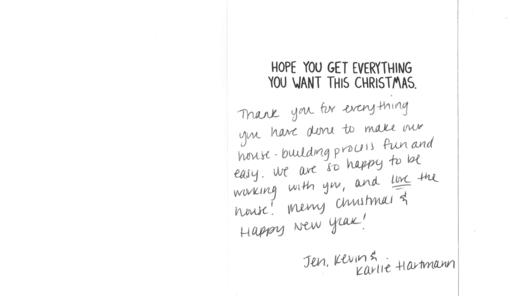 HOPE YOU GET EVERYTHING
YOU WANT THIS CHRISTMAS.
Thank you for everything
you have done to make our
house-building process fun and
easy. We are so happy to be
working with you, and love the
house! Merry Christmas &
Happy New Year!
Jen, Kevin &
Karlie Hartmann